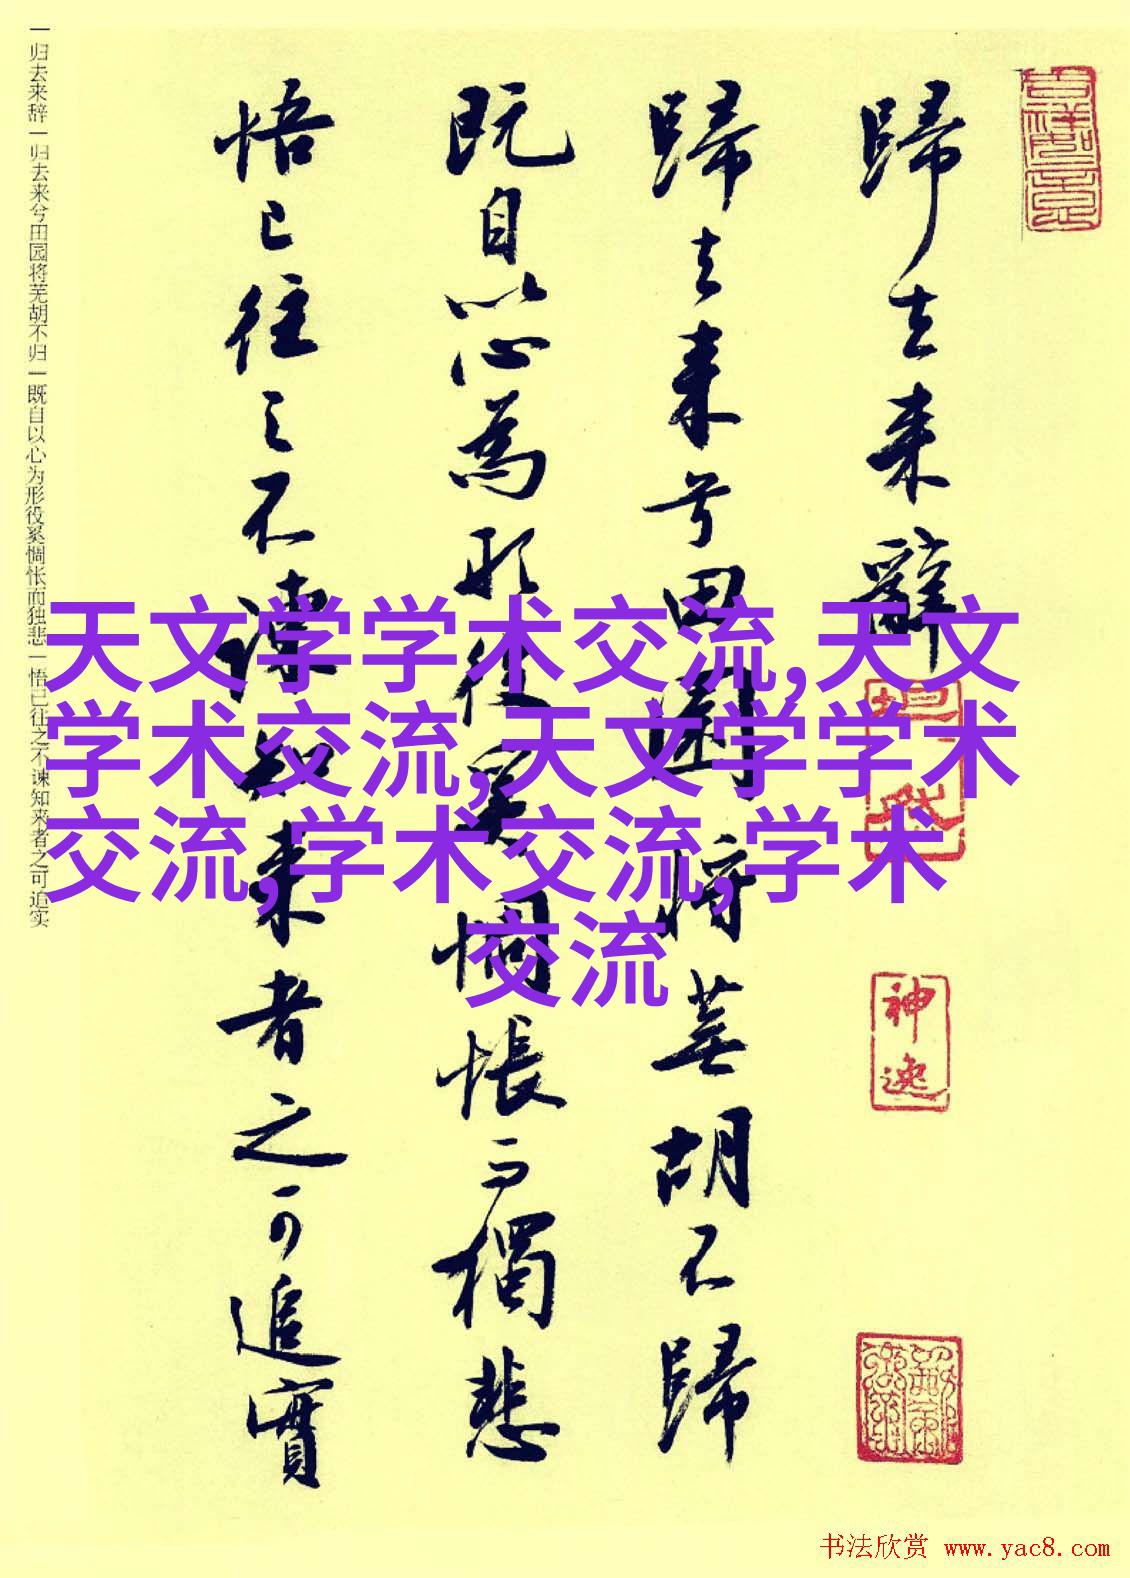 歸去来辭
歸去来兮田園将蕪胡不歸
既自以心為形役奚惆悵而獨悲
悟已往之不諫知来者之可追實
神逸
一归去来辞一归去来兮田园将芜胡不归一既自以心为形役奚惆怅而独悲一悟已往之不谏知来者之可追实
天文学学术交流,天文
学术交流,天文学学术
交流,学术交流,学术
交流
书法欣赏 www.yac8.com